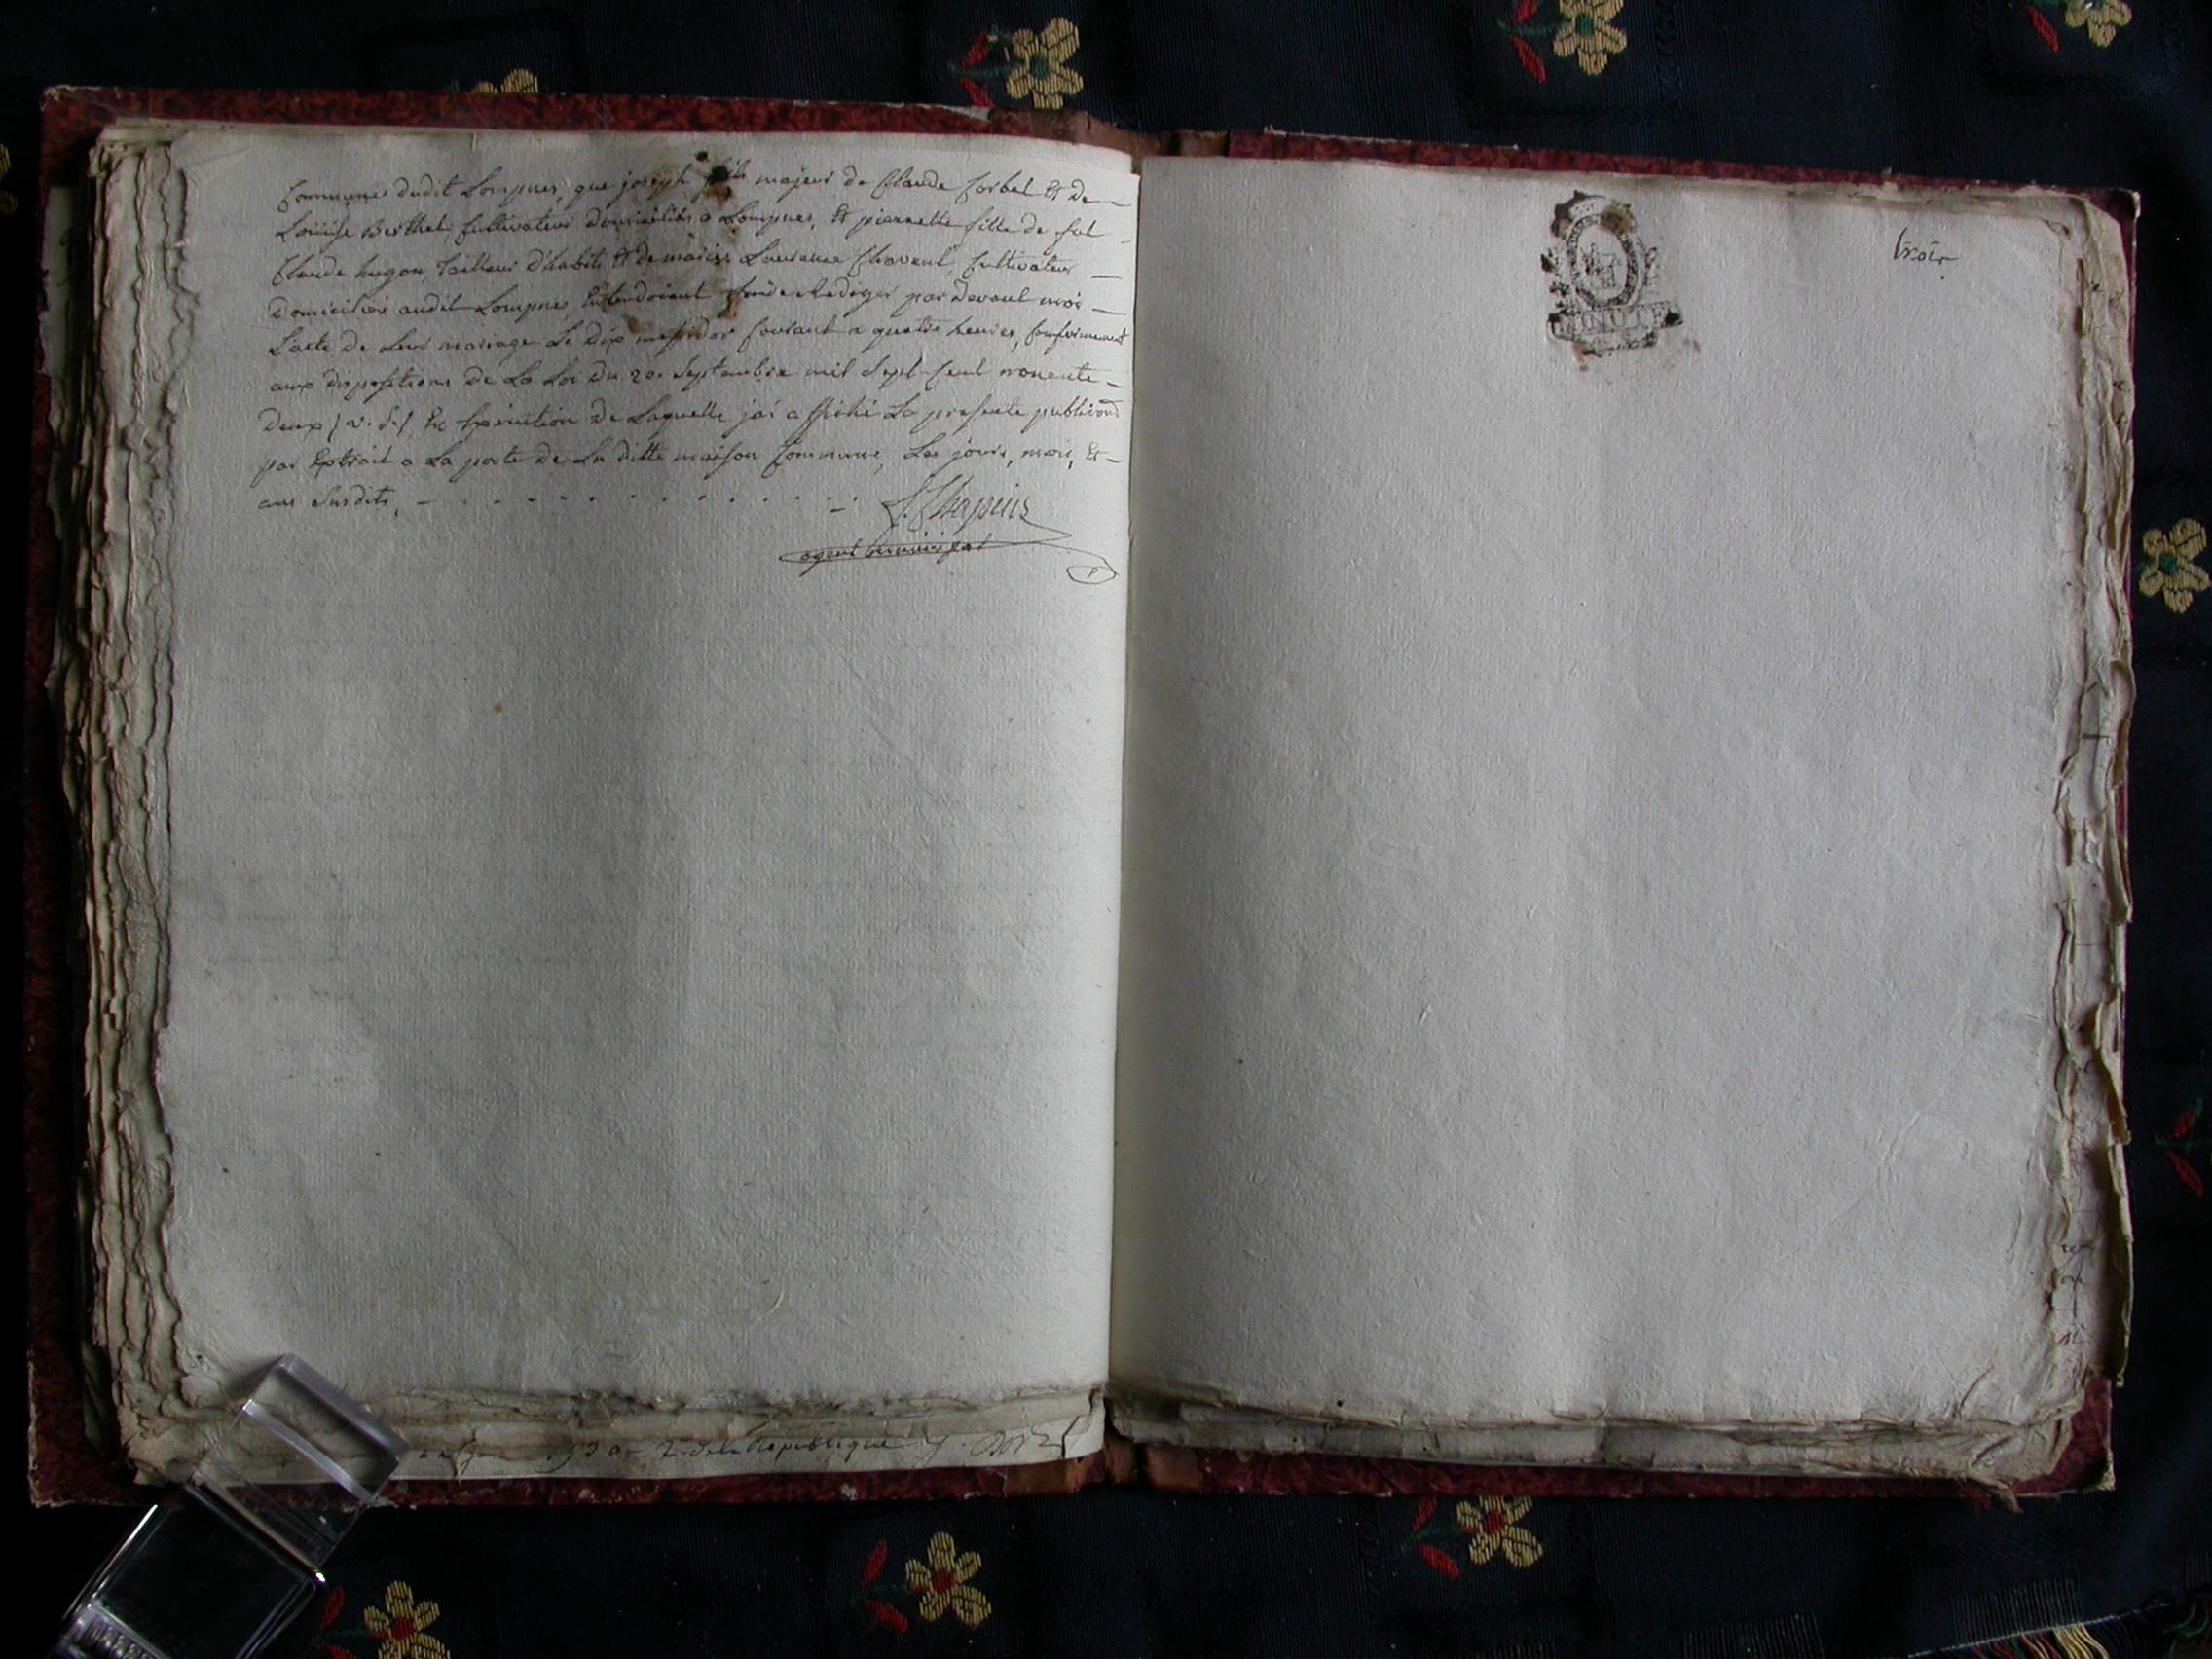 Communes dudit Lompnes, que joseph fils majeur de Claude Corbet Et de
Louise Berthet, Cultivateurs domiciliés a Lompnes, Et pierrette fille de fut
Claude hugon, tailleur d'habits Et de marie Laurence Chavent, Cultivateur
domiciliés audit Lompnes, Entendoient faire Rediger par devant moi
L'acte de Leur mariage Le dix messidor Courant a quatre heures, Conformement
aux dispositions de La Loi du 20. Septembre mil Sept Cent nonente
deux (v. s.), En Execution de Laquelle jai affiché La presente
par Extrait a La porte de La ditte maison Commune, Les jours, mois, Et
ans Susdits,
Chapuis
agent municipal
trois
2. de la Republique